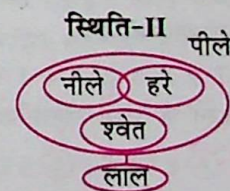 स्थिति-II
पीले
नीले हरे
श्वेत
लाल